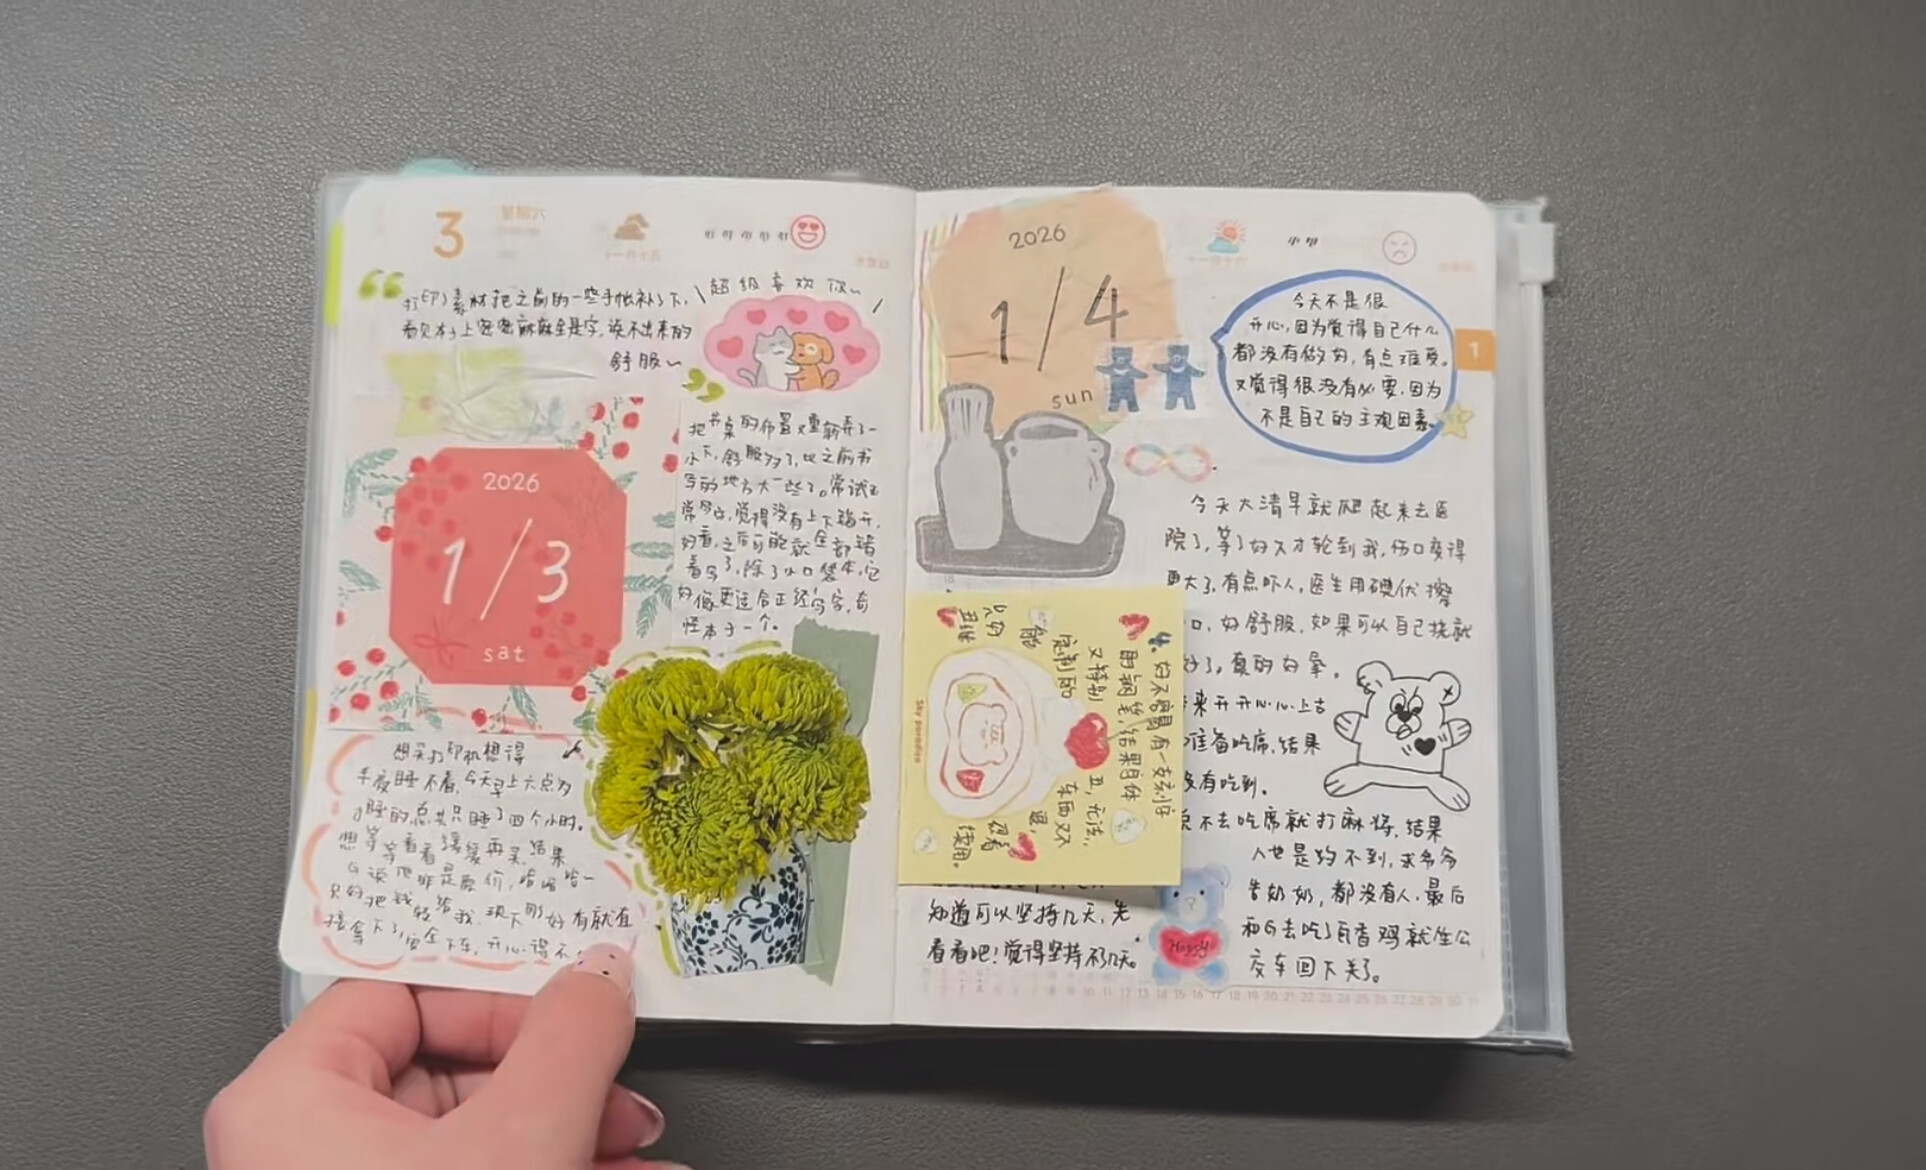 3
星期六
打印了素材把之前的一些手帐补了下,
看见本子上密密麻麻全是字,说不出来的
舒服~
超级喜欢你~
把书桌的布置又重新弄了一
小下,舒服多了,比之前书
写的地方大一些了。尝试了
觉得没有上下错开,
好看,之后可能就全部错
着写了,除了小口袋本,它
好像更适合正经写字,奇
怪本子一个。
2026
1/3
sat
想买打印机想得
半夜睡不着,今天早上六点多
睡的总共只睡了四个小时。
想等等看看缓缓再买,结果
G说他那是原价,哈哈哈~
只好把钱转给我,现下刚好有就直
接拿下了,安全下车,开心得不
2026
1/4
sun
今天不是很
开心,因为觉得自己什么
都没有做好,有点难受。
又觉得很没有必要,因为
不是自己的主观因素。
1
今天大清早就爬起来去医
院了,等了好久才轮到我,伤口变得
更大了,有点吓人,医生用碘伏擦
口,好舒服,如果可以自己挠就
好了,真的好晕。
来开开心心上去
准备吃席,结果
没有吃到。
不去吃席就打麻将,结果
人也是约不到,求爷爷
告奶奶,都没有人,最后
和G去吃了瓦香鸡就坐公
交车回下关了。
好不容易有一支刚好
的钢笔,结果自体
又特别
定制的
能
只好
丑,无法,
Sky paradise
知道可以坚持几天,先
看看吧!觉得坚持不了几天。
Happy
10 11 12 13 14 15 16 17 18 19 20 21 22 23 24 25 26 27 28 29 30 31